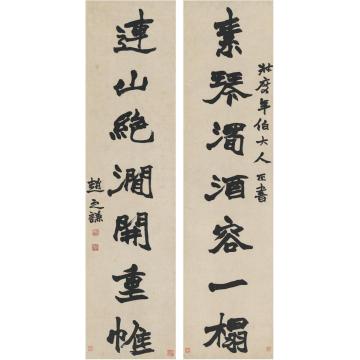 素琴濁酒容一榻
壯唐年伯大人正書
連山絕澗開重帷
趙之謙